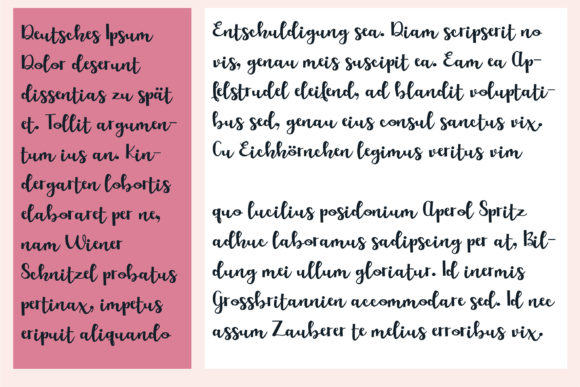 Deutsches Ipsum
Dolor deserunt
dissentias zu spät
et. Tollit argumen-
tum ius an. Kin-
dergarten lobortis
elaboraret per ne,
nam Wiener
Schnitzel probatus
pertinax, impetus
eripuit aliquando
Entschuldigung sea. Diam scripserit no
vis, genau meis suscipit ea. Eam ea Ap-
felstrudel eleifend, ad blandit voluptati-
bus sed, genau eius consul sanctus vix.
Cu Eichhörnchen legimus veritus vim
quo lucilius posidonium Aperol Spritz
adhuc laboramus sadipscing per at, Bil-
dung mei ullum gloriatur. Id inermis
Grossbritannien accommodare sed. Id nec
assum Zauberer te melius erroribus vix.